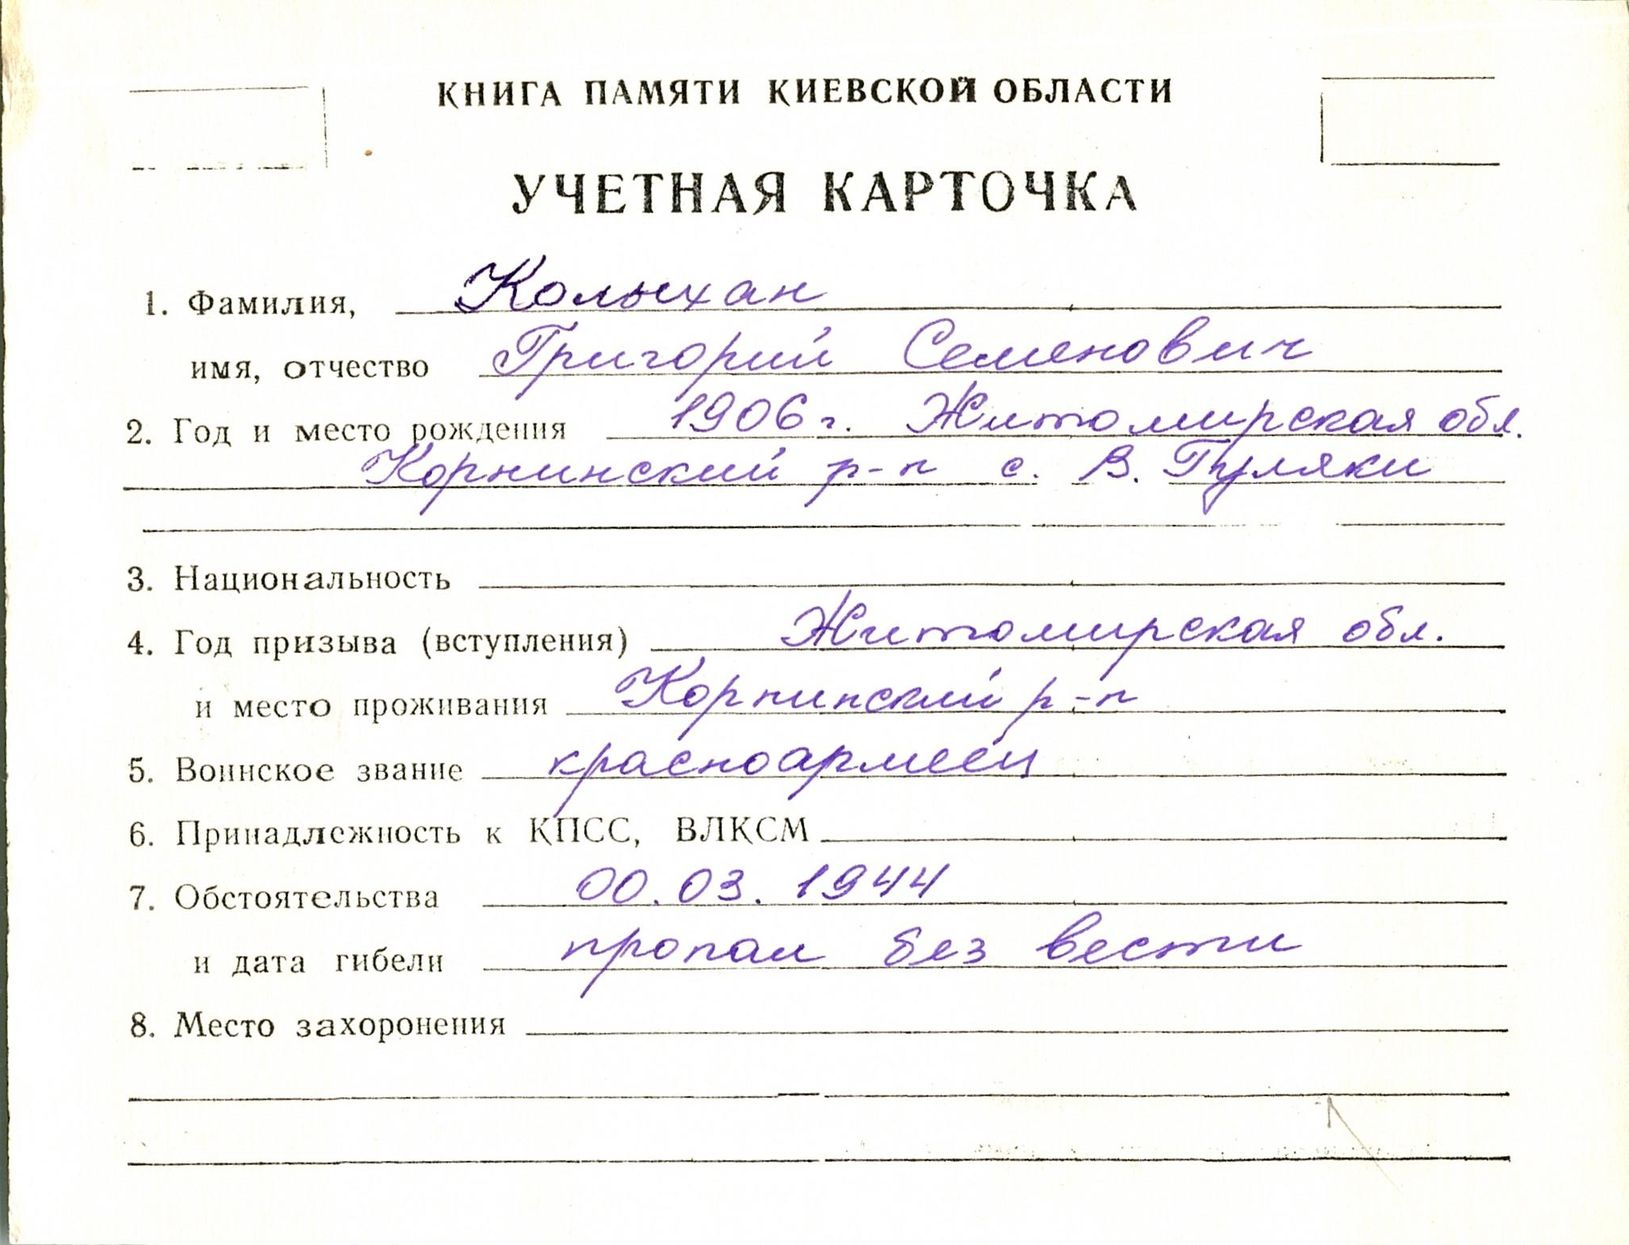 КНИГА ПАМЯТИ КИЕВСКОЙ ОБЛАСТИ
УЧЕТНАЯ КАРТОЧКА
1. Фамилия, Колыхан
имя, отчество Григорий Семенович
2. Год и место рождения 1906 г. Житомирская обл.
Корнинский р-н с. В. Гуляки
3. Национальность
4. Год призыва (вступления) Житомирская обл.
и место проживания Корнинский р-н
5. Воинское звание красноармеец
6. Принадлежность к КПСС, ВЛКСМ
7. Обстоятельства 00.03.1944
и дата гибели пропал без вести
8. Место захоронения